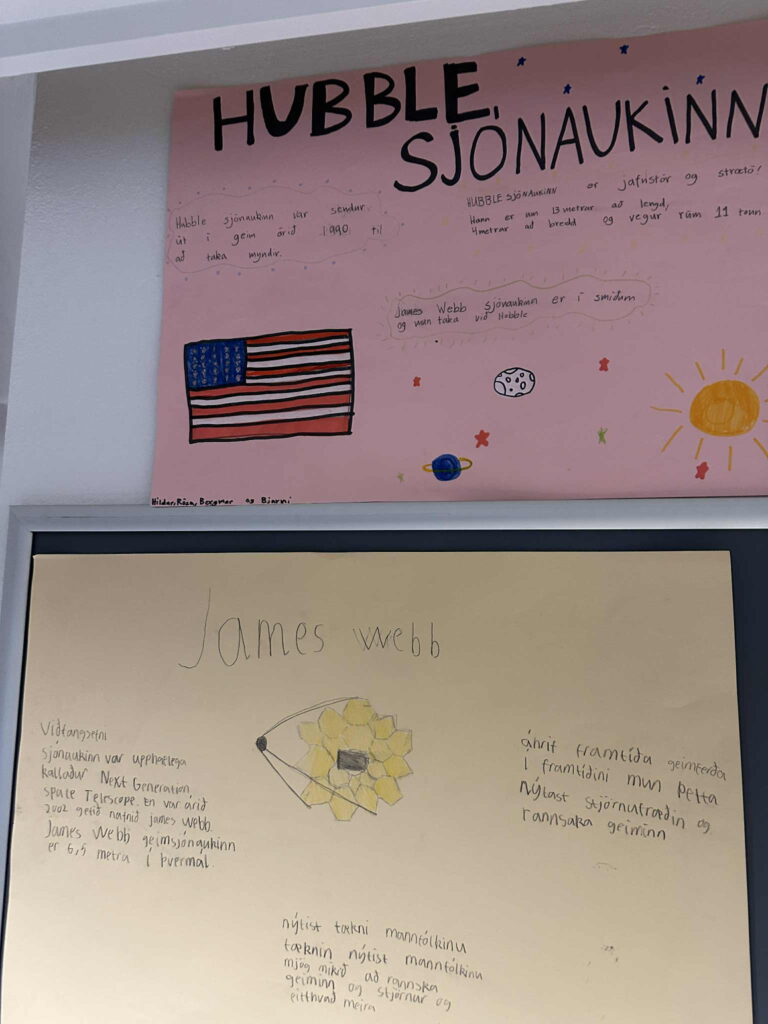 HUBBLE
SJÓNAUKINN
Hubble sjónaukinn var sendur
út í geim árið 1990 til
að taka myndir.
HUBBLE SJÓNAUKINN er jafnstór og strætó!
Hann er um 13 metrar að lengd,
4metrar að breidd og vegur rúm 11 tonn.
James Webb sjónaukinn er í smíðum
og mun taka við Hubble
Hildur, Rósa, Bergmar og Bjarni
James Webb
Viðfangsefni
sjónaukinn var upphaflega
kallaður Next Generation
space Telescope. En var árið
2002 gefið nafnið james webb.
James Webb geimsjónaukinn
er 6,5 metra í þvermál
áhrif framtíða geimferða
í framtíðini mun þetta
nýtast stjörnufræðin og
rannsaka geiminn
nýtist tækni mannfólkinu
tæknin nýtist mannfólkinu
mjög mikið að rannska
geiminn og stjörnur og
eitthvað meira